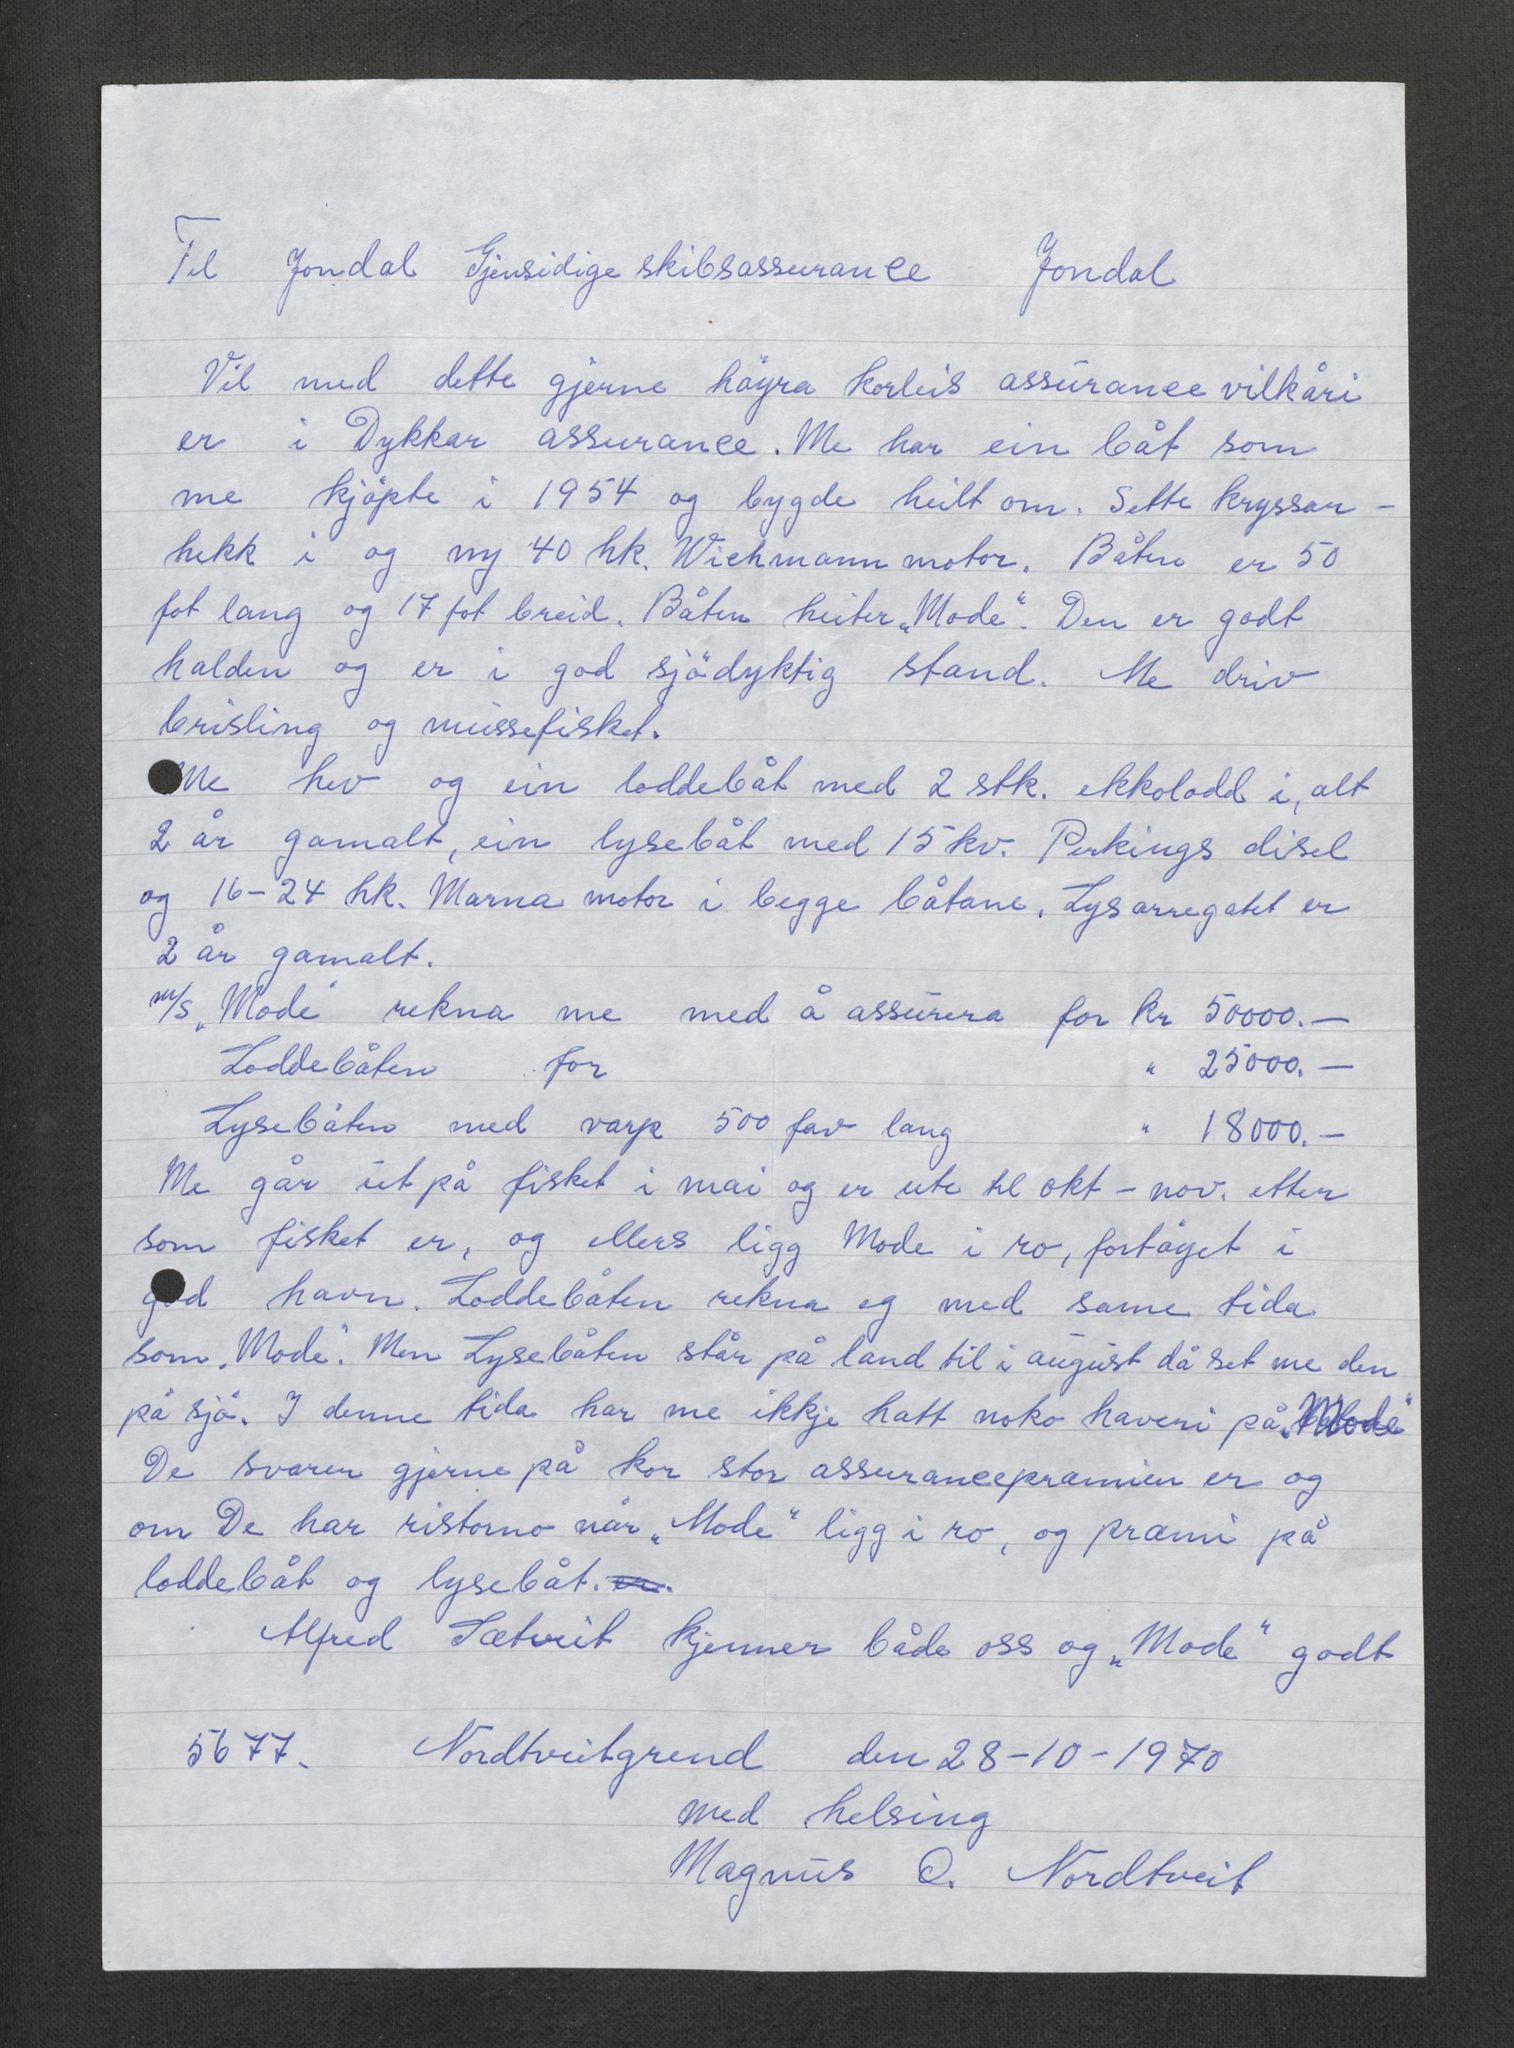 Til Jondal Gjensidige skibsassurance Jondal
Vil med dette gjerne höyra korleis assurance vilkåri
er i Dykkar assurance. Me har ein båt som
me kjöpte i 1954 og bygde heilt om. Sette kryssar-
hekk i og ny 40 hk. Wichmann motor. Båten er 50
fot lang og 17 fot breid. Båten heiter „Mode“. Den er godt
halden og er i god sjödyktig stand. Me driv
brisling og mussefisket.
Me hev og ein loddebåt med 2 stk. ekkolodd i, alt
2 år gamalt, ein lysebåt med 15 kv. Perkings disel
og 16-24 hk. Marna motor i begge båtane. Lysarregatet er
2 år gamalt.
m/s „Mode“ rekna me med å assurera for kr 50000.—
Loddebåten for " 25000.—
Lysebåten med varp 500 fav lang " 18000.—
Me går ut på fisket i mai og er ute til okt-nov. etter
som fisket er, og ellers ligg Mode i ro, fortöyet i
god havn. Loddebåten rekna eg med same tida
som „Mode“. Men Lysebåten står på land til i august då set me den
på sjö. I denne tida har me ikkje hatt noko haveri på „Mode“
De svarer gjerne på kor stor assurancepræmien er og
om De har ristorno når „Mode“ ligg i ro, og præmi på
loddebåt og lysebåt.
Alfred Sætveit kjenner både oss og „Mode“ godt
5677. Nordtveitgrend den 28-10-1970
med helsing
Magnus O. Nordtveit